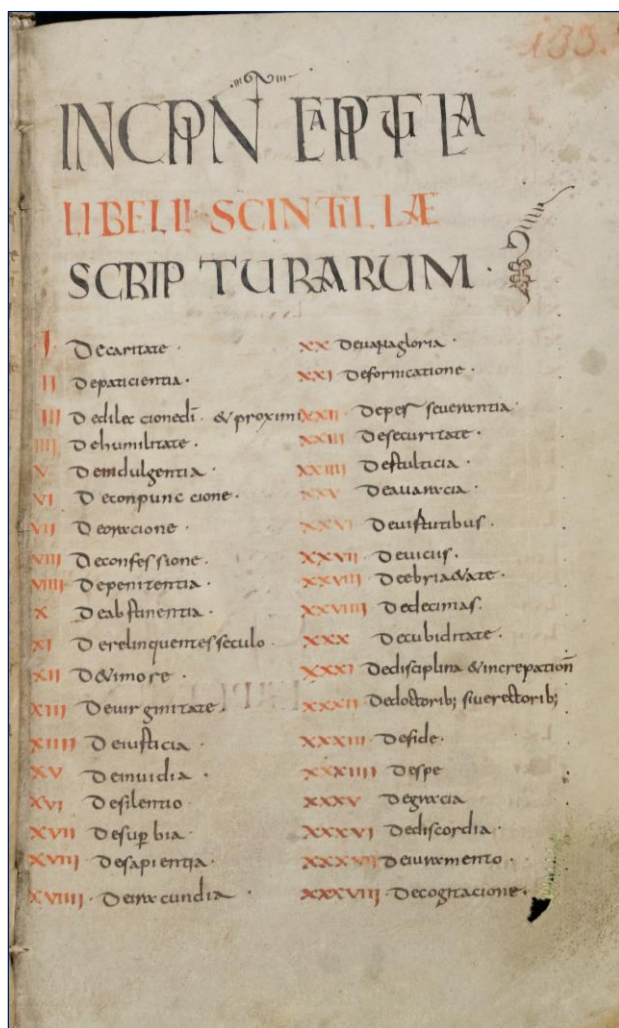 133.
INCIPIUNT CAPITULA
LIBELLI SCINTILLAE
SCRIPTURARUM ·
I · De caritate ·
II De paticientia ·
III De dilec cione di · & proximi
IIII De humilitate ·
V De indulgentia ·
VI De conpunc cione ·
VII De oracione ·
VIII De confessione ·
VIIII De penitentia ·
X De abstinentia ·
XI De relinquentes seculo ·
XII De timore ·
XIII De uirginitate ·
XIIII De iusticia ·
XV De inuidia ·
XVI De silentio
XVII De sup bia ·
XVIII · De sapientia ·
XVIIII · De iracundia ·
XX De uana gloria ·
XXI De fornicatione ·
XXII · De per seuerantia ·
XXIII De securitate ·
XXIIII De stulticia ·
XXV De auaricia ·
XXVI De uirtutibus ·
XXVII · De uicus ·
XXVIII De ebri&ate ·
XXVIIII De decimas ·
XXX De cubiditate ·
XXXI De disciplina & increpation
XXXII De doctorib; siue rectorib;
XXXIII · De fide ·
XXXIIII De spe
XXXV De gracia
XXXVI De discordia ·
XXXVII De iuramento ·
XXXVIII De cogitacione ·